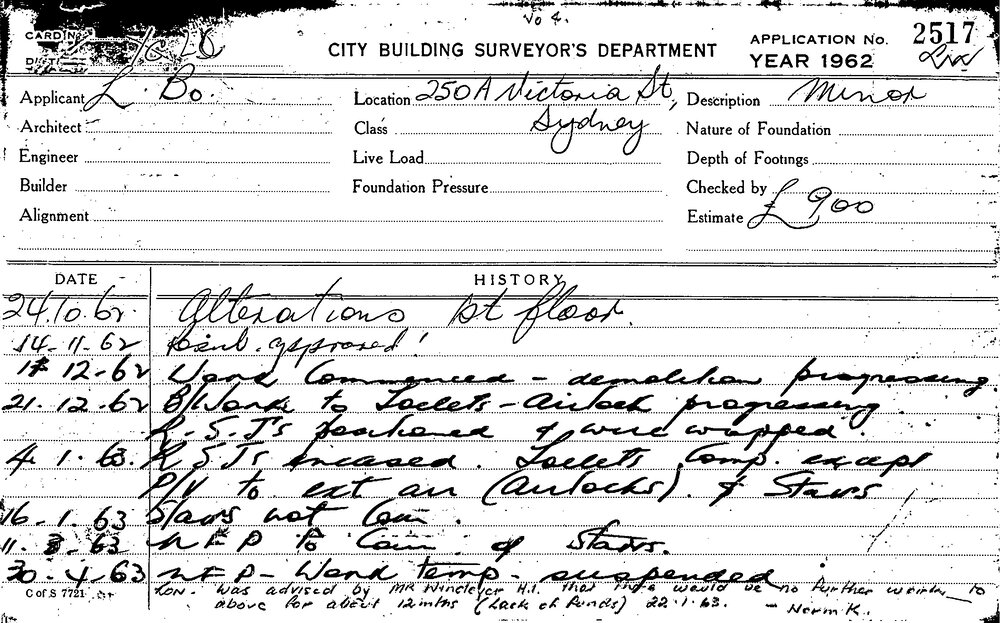 No 4.
CARD IN
CITY BUILDING SURVEYOR'S DEPARTMENT
APPLICATION No. 2517
YEAR 1962
Applicant L. Bo.
Location 250A Victoria St,
Sydney
Description Minor
Architect
Class
Nature of Foundation
Engineer
Live Load
Depth of Footings
Builder
Foundation Pressure
Checked by
Alignment
Estimate £ 900
DATE HISTORY
24.10.62. Alterations 1st floor.
14-11-62 approved
17 12-62 Work Commenced - demolition progressing.
21.12.62 B/Work to Toilets - Airlock progressing
R.S.J's positioned & wire wrapped.
4.1.63. R.S.Js encased. Toilets Comp. except
P/V to ext air (Airlocks). & Stairs
16.1.63 Stairs not Com.
11.3.63 N F P to Com. of Stairs.
30.4.63 N.F.P - Work temp. suspended.
C of S 7721
CON. was advised by MR H.I. that there would be no further work to
above for about 12 mths (Lack of Funds) 22.1.63. - Norm K.